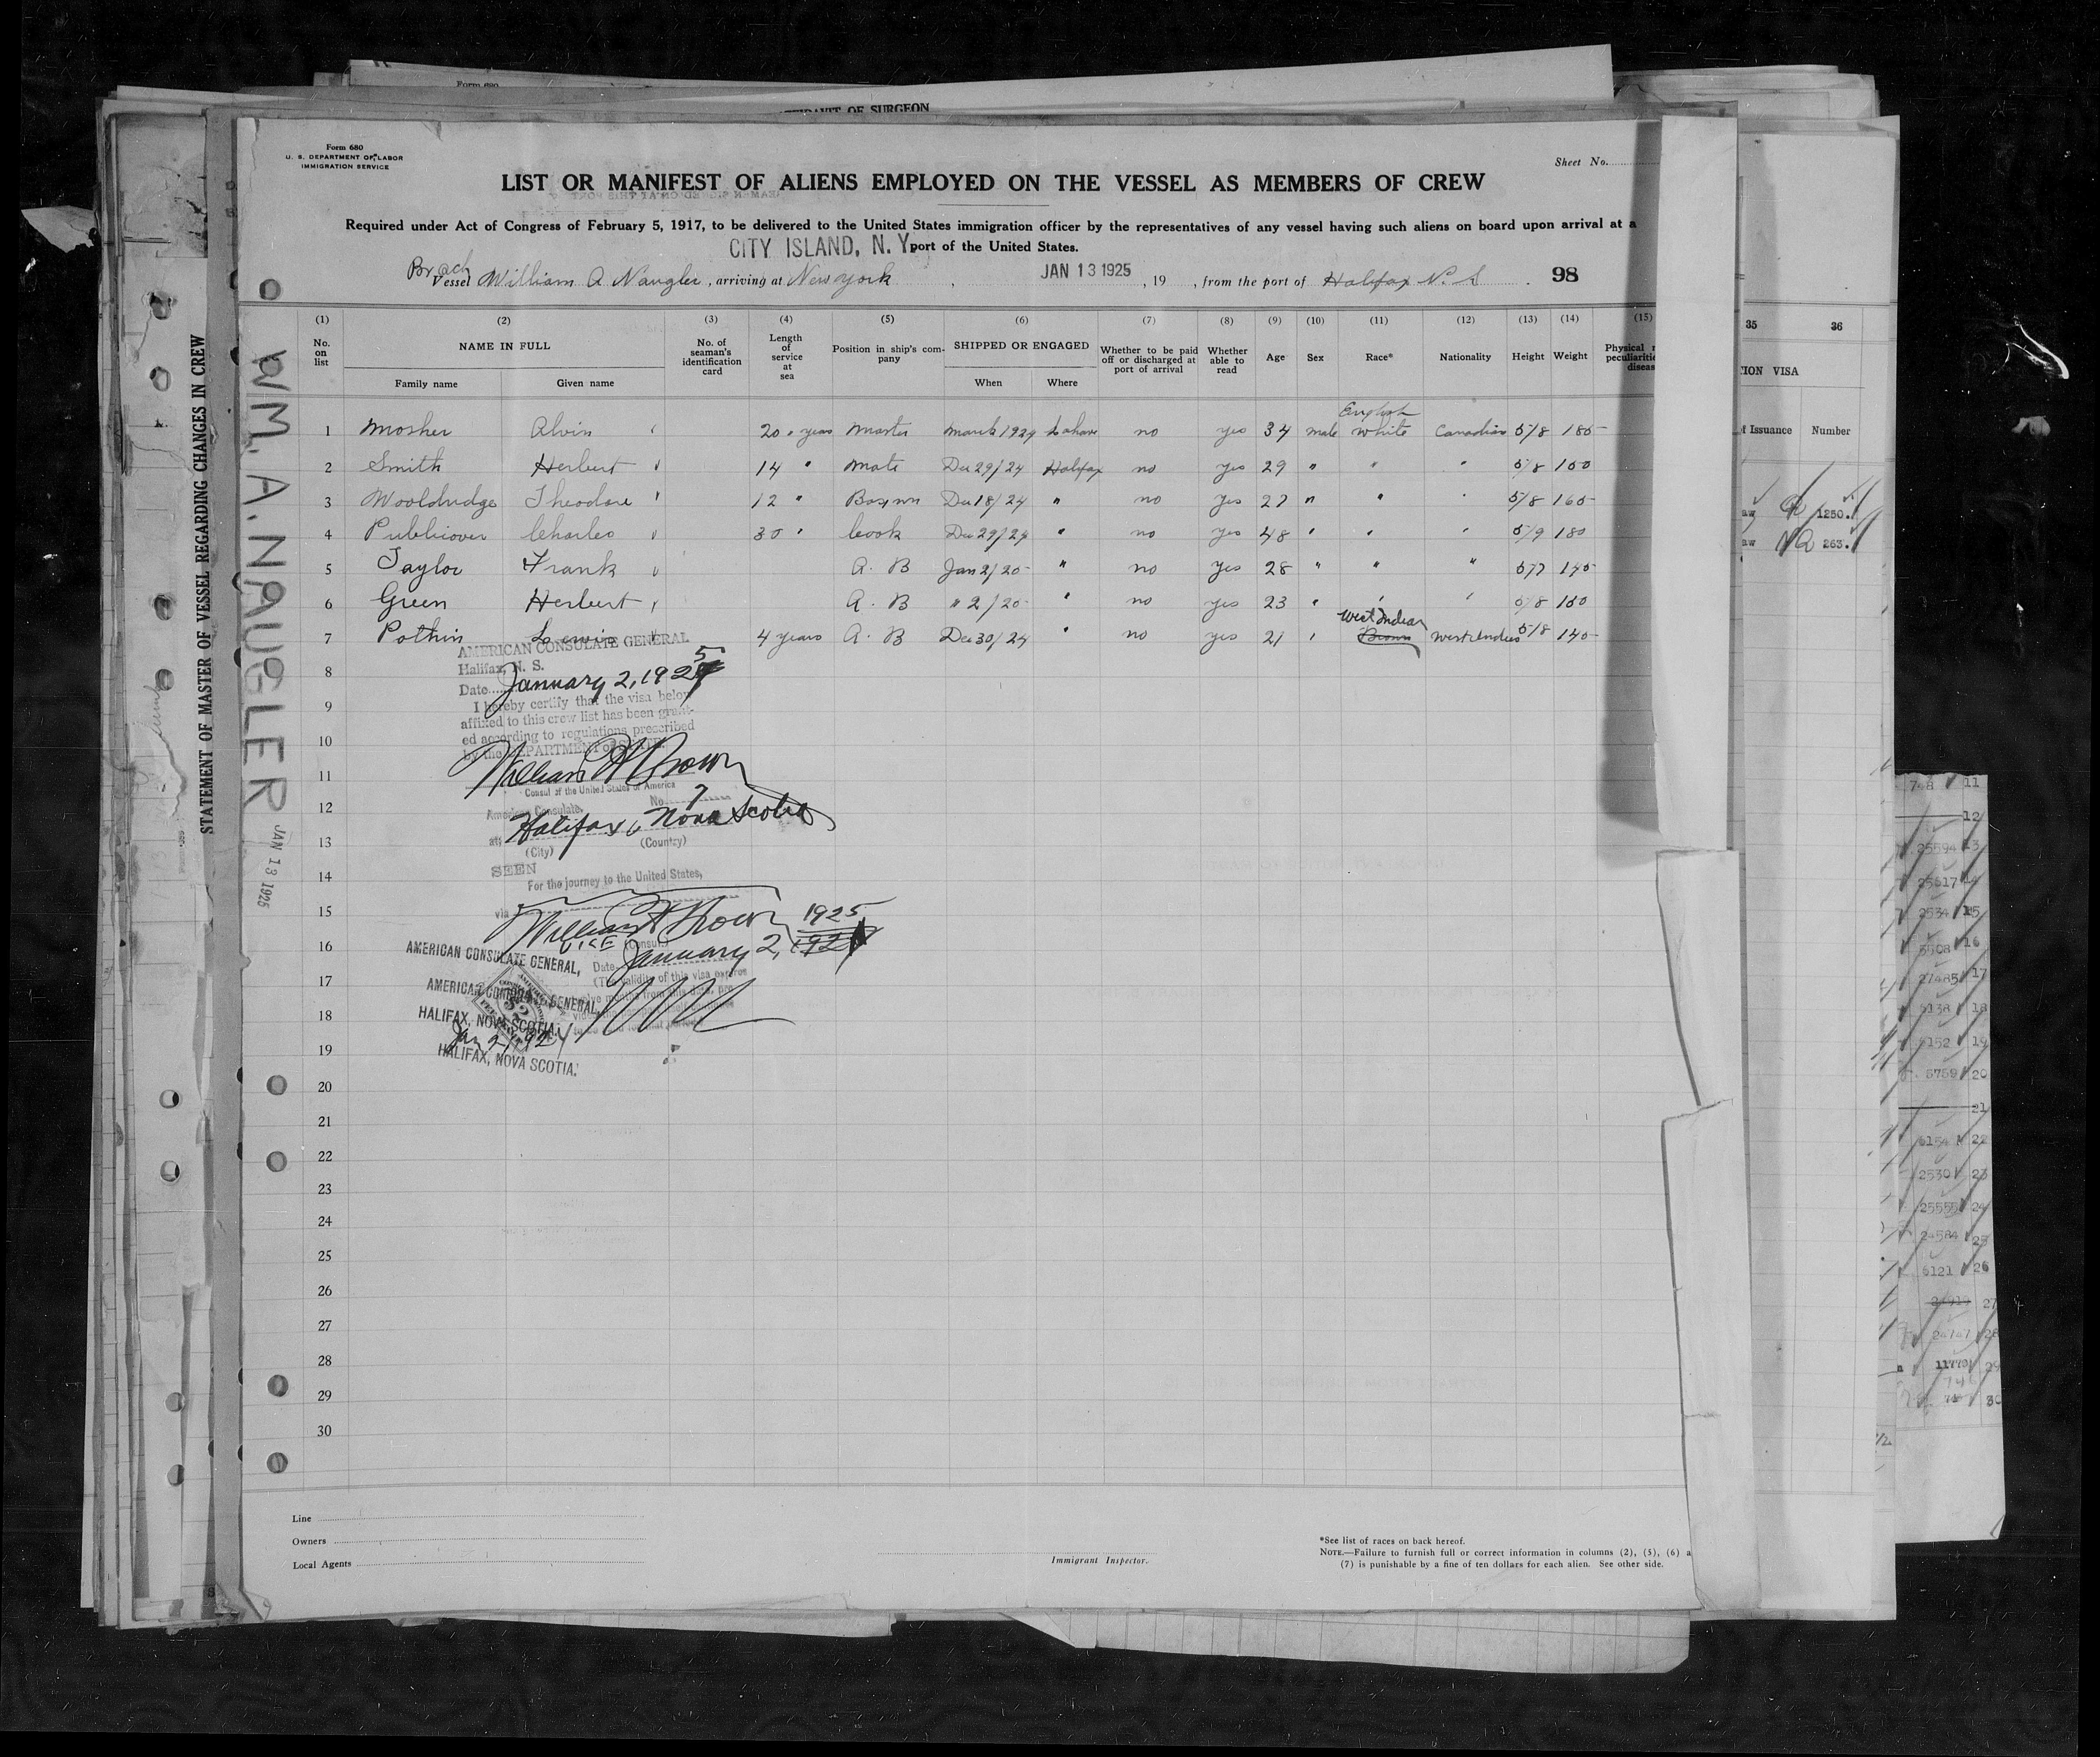 Form 680
AFFIDAVIT OF SURGEON
Form 680
U. S. DEPARTMENT OF LABOR
IMMIGRATION SERVICE
Sheet No.
LIST OR MANIFEST OF ALIENS EMPLOYED ON THE VESSEL AS MEMBERS OF CREW
Required under Act of Congress of February 5, 1917, to be delivered to the United States immigration officer by the representatives of any vessel having such aliens on board upon arrival at a
CITY ISLAND, N. Y. port of the United States.
Vessel William A Naugler, arriving at New York, JAN 13 1925, 19 , from the port of Halifax N. S. 98
(1) (2) (3) (4) (5) (6) (7) (8) (9) (10) (11) (12) (13) (14) (15)
No. on list NAME IN FULL No. of seaman's identification card Length of service at sea Position in ship's company SHIPPED OR ENGAGED Whether to be paid off or discharged at port of arrival Whether able to read Age Sex Race* Nationality Height Weight Physical
Family name Given name When Where
English
1 Mosher Alvin 20 years Master March 1924 Lahave no yes 34 male white Canadian 5/8 185
2 Smith Herbert 14 " Mate Dec 29/24 Halifax no yes 29 " " " 5/8 150
3 Wooldridge Theodore 12 " Bosswn Dec 18/24 " no yes 27 " " " 5/8 165
4 Publicover Charles 30 " Cook Dec 29/24 " no yes 48 " " " 5/9 180
5 Taylor Frank A. B Jan 2/25 " no yes 28 " " " 5/7 145
6 Green Herbert A. B " 2/25 " no yes 23 " " " 5/8 150
West Indian
7 Pothin Lewis 4 years A. B Dec 30/24 " no yes 21 " Brown West Indies 5/8 140
AMERICAN CONSULATE GENERAL
Halifax, N. S.
Date January 2, 1925
I hereby certify that the visa below
affixed to this crew list has been grant-
ed according to regulations prescribed
by the DEPARTMENT of STATE.
William H Brown
Consul of the United States of America
American Consulate, No. 7
at: Halifax, Nova Scotia
(City) (Country)
SEEN
For the journey to the United States,
via
William H Brown 1925
VICE (Consul)
AMERICAN CONSULATE GENERAL, Date January 2, 1924
(The validity of this visa expires
AMERICAN CONSULATE GENERAL,
HALIFAX, NOVA SCOTIA.
Jan 2-1924
HALIFAX, NOVA SCOTIA.
8
9
10
11
12
13
14
15
16
17
18
19
20
21
22
23
24
25
26
27
28
29
30
Line
Owners
Local Agents
Immigrant Inspector.
*See list of races on back hereof.
NOTE.—Failure to furnish full or correct information in columns (2), (5), (6) a
(7) is punishable by a fine of ten dollars for each alien. See other side.
STATEMENT OF MASTER OF VESSEL REGARDING CHANGES IN CREW
WM. A. NAUGLER JAN 13 1925
35 36
ION VISA
of Issuance Number
1250.
263.
748 11
12
25594 13
25617 14
2534 15
5508 16
27485 17
6138 18
6152 19
5759 20
21
6154 22
2530 23
25555 24
24584 25
6121 26
27
24747 28
11770 29
30